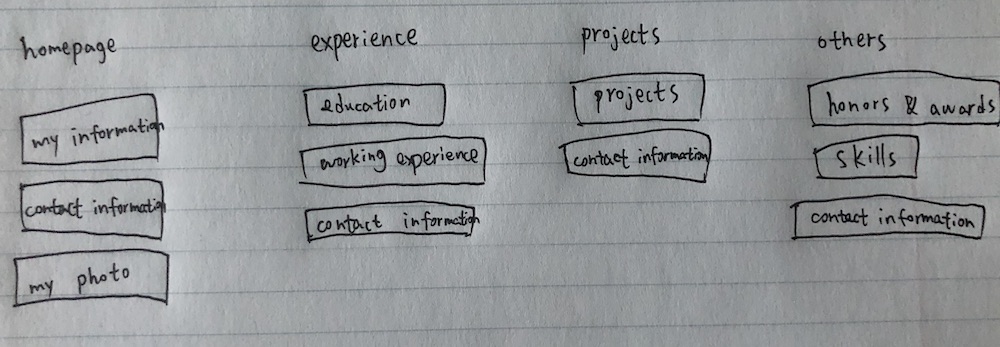 homepage
my information
contact information
my photo
experience
education
working experience
contact information
projects
projects
contact information
others
honors & awards
skills
contact information